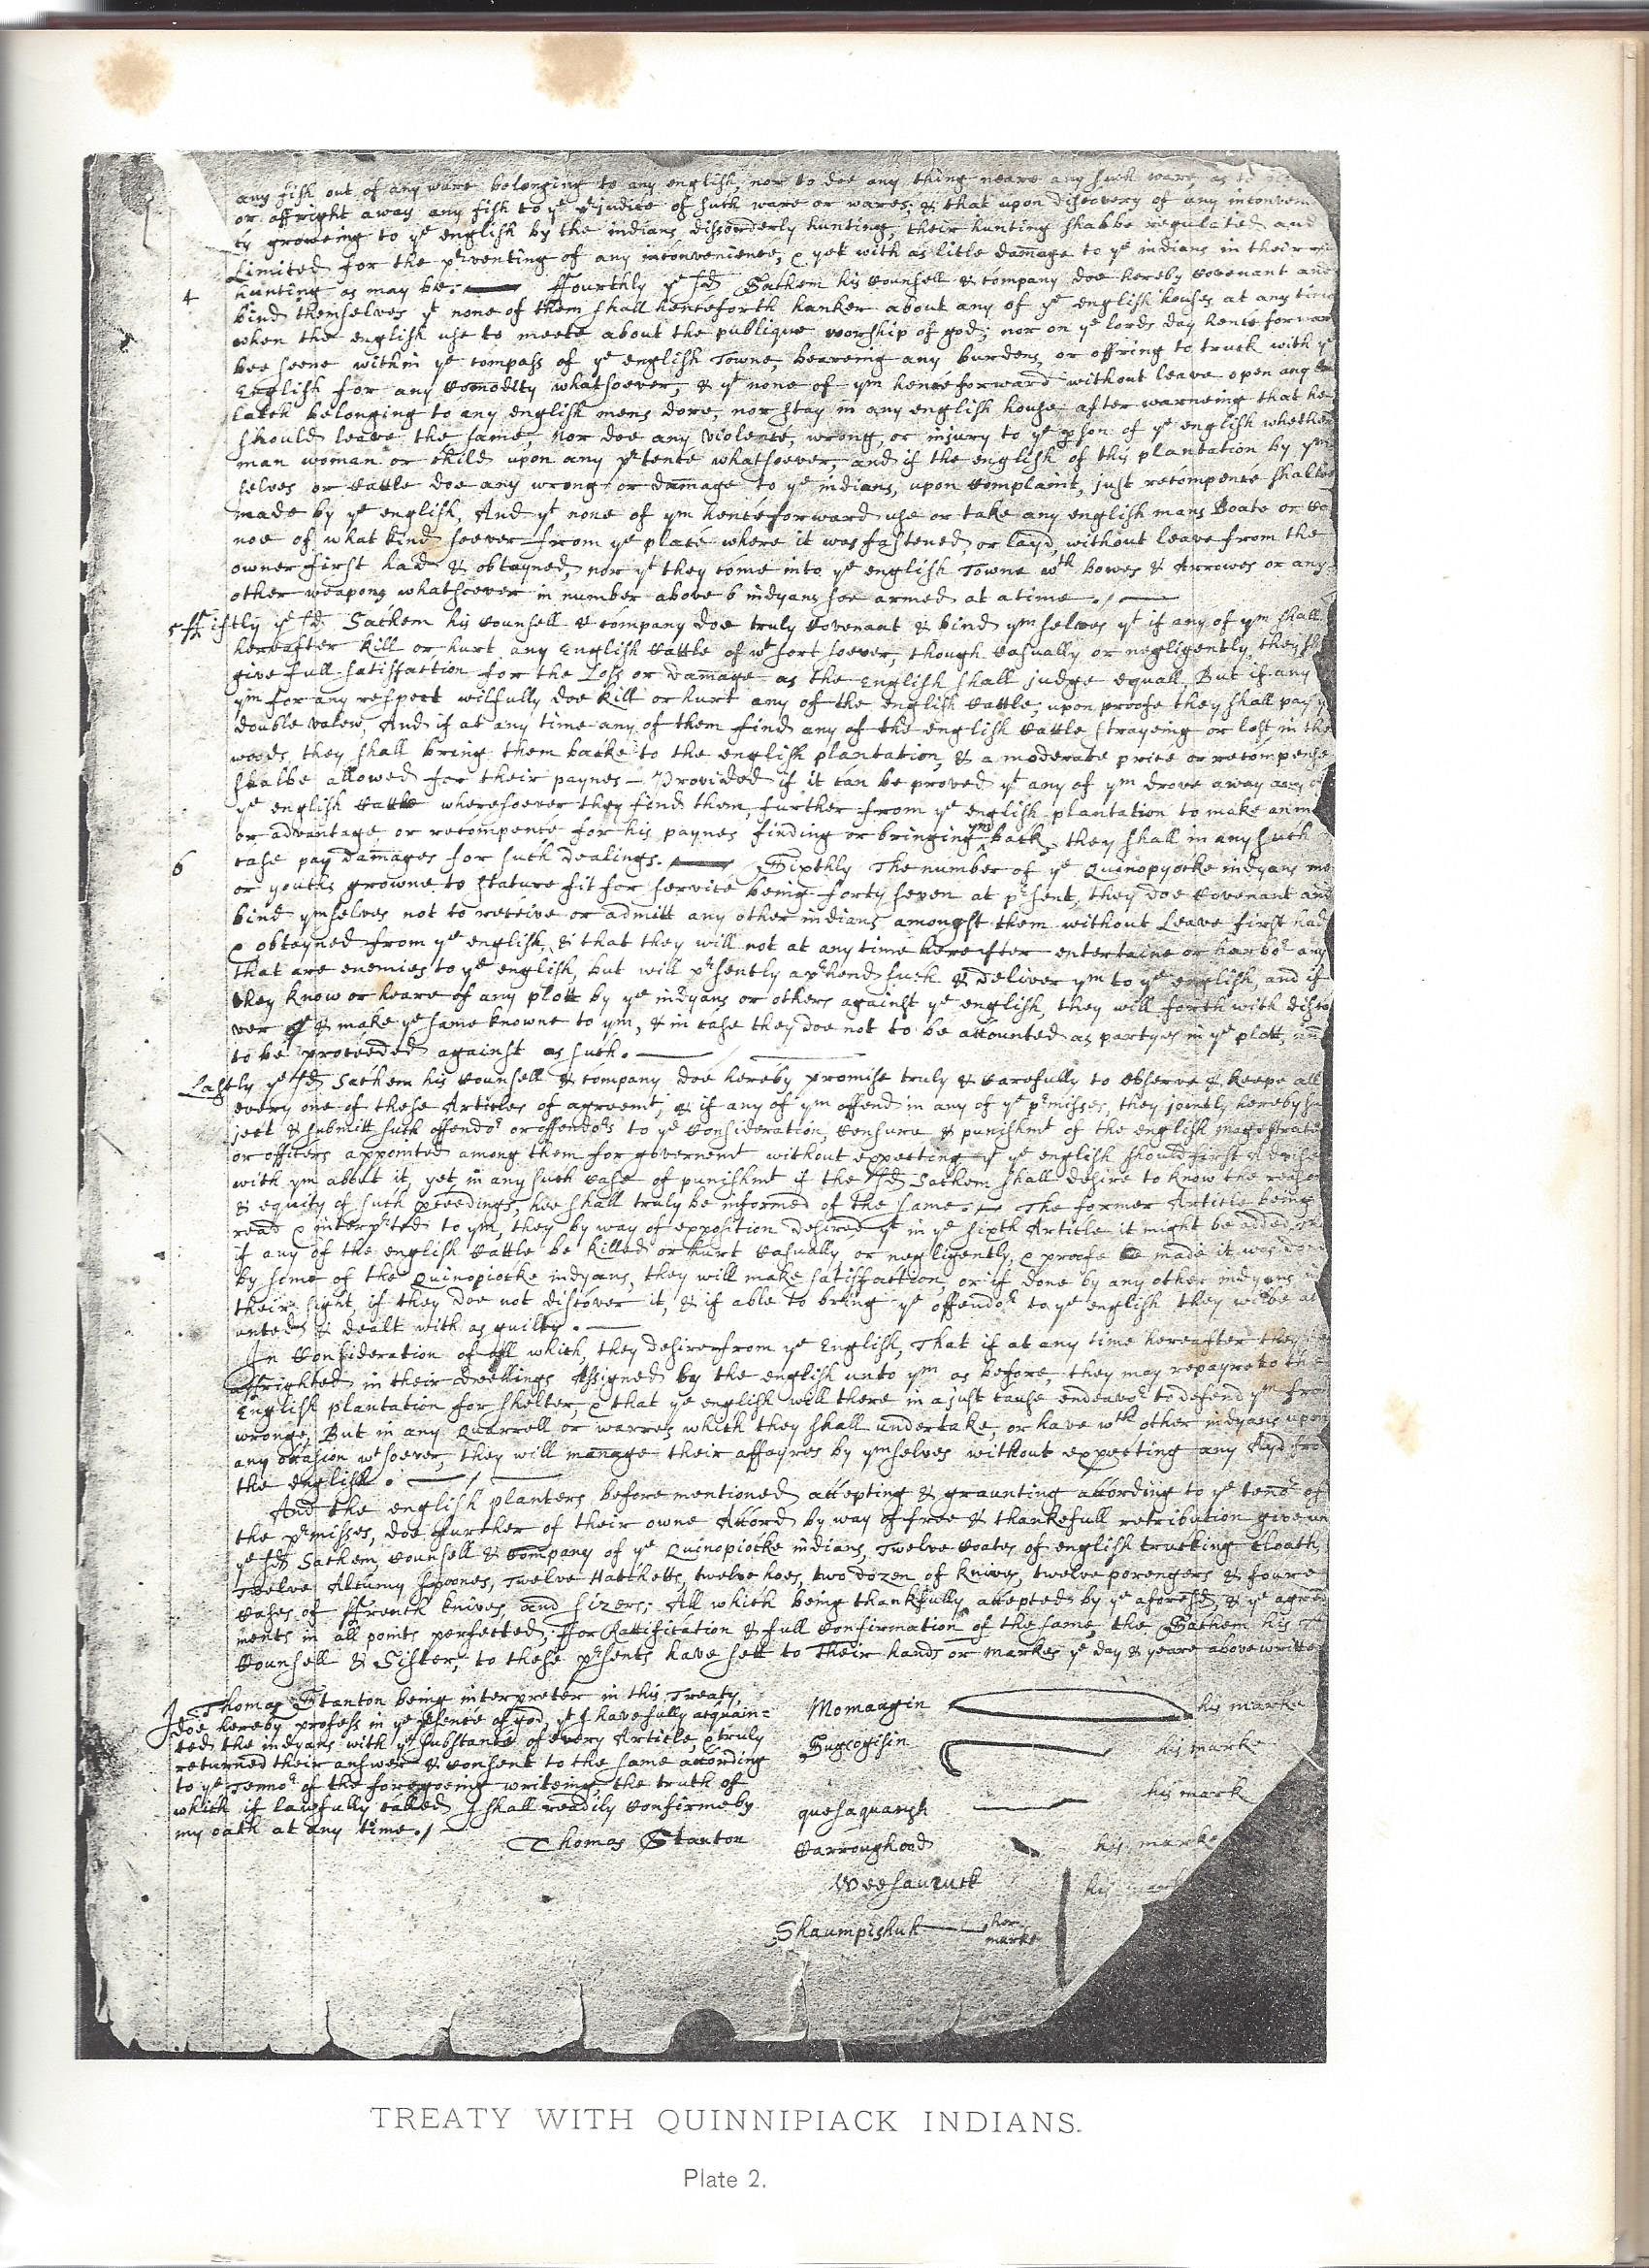 any fish out of any ware belonging to any english, nor to doe any thing neare any such ware, as to
or affright away any fish to yᵉ pʳjudice of such ware or wares; & that upon discovery of any inconveni
ty growing to yᵉ english by the indians dissorderly hunting, their hunting shalbe regulated and
Limited for the pʳventing of any inconvenience, & yet with as litle damage to yᵉ indians in their
4 hunting as may be. Ffourthly yᵉ sᵈ Sachem his counsell & company doe hereby covenant and
bind themselves yᵗ none of them shall henceforth hanker about any of yᵉ english houses at any time
when the english use to meete about the publique worship of god; nor on yᵉ lords day henceforward
bee seene within yᵉ compass of yᵉ english Towne, beareing any burdens, or offring to truck with yᵉ
English for any comodity whatsoever, & yᵗ none of yᵐ henceforward without leave open any
latch belonging to any english mens dore, nor stay in any english house after warneing that he
should leave the same, nor doe any violence, wrong, or injury to yᵉ pson of yᵉ english whether
man woman or child upon any pʳtence whatsoever, and if the english of this plantation by yᵐ
selves or cattle doe any wrong or damage to yᵉ indians, upon complaint, just recompence shalbe
made by yᵉ english, And yᵗ none of yᵐ henceforward use or take any english mans Boate or ca
noe of what kind soever from yᵉ place where it was fastened or layd, without leave from the
owner first had & obtayned, nor yᵗ they come into yᵉ english Towne wᵗʰ bowes & Arrowes or any
other weapons whatsoever in number above 6 indyans soe armed at a time
5 ffiftly yᵉ sᵈ Sachem his counsell & company doe truly covenant & bind yᵐselves yᵗ if any of yᵐ shall
hereafter kill or hurt any English cattle of wᵗ sort soever, though casually or negligently, they sh
give full satisfaction for the Loss or damage as the English shall judge equall. But if any
yᵐ for any respect wilfully doe kill or hurt any of the english cattle, upon proofe they shall pay yᵉ
double valew, And if at any time any of them find any of the english cattle strayeing or lost in the
woods, they shall bring them backe to the english plantation, & a moderate price or recompense
shalbe allowed for their paynes – Provided if it can be proved yᵗ any of yᵐ drove away any of
yᵉ english cattle wheresoever they find them, further from yᵉ english plantation to make an
or advantage or recompence for his paynes finding or bringing yᵐ back, they shall in any such
6 case pay damages for such dealings. Sixthly The number of yᵉ Quinopyocke indyans me
or youths growne to stature fit for service being forty seven at pʳsent, they doe covenant and
bind yᵐselves not to receive or admitt any other indians amongst them without Leave first had
& obtayned from yᵉ english, & that they will not at any time hereafter entertaine or harboʳ any
that are enemies to yᵉ english, but will pʳsently apʳhend such & deliver yᵐ to yᵉ english, and if
they know or heare of any plott by yᵉ indyans or others against yᵉ english, they will forthwith disco
ver & make yᵉ same knowne to yᵐ, & in case they doe not to be accounted as partyes in yᵉ plott, and
to be proceeded against as such.
Lastly yᵉ sᵈ Sachem his counsell & company doe hereby promise truly & carefully to observe & keepe all
every one of these Articles of agreemᵗ, & if any of yᵐ offend in any of yᵉ pʳmisses, they jointly hereby su
ject & submitt such offendoʳ or offendoʳs to yᵉ consideration, censure & punishmᵗ of the english magestrate
or officers appointed among them for governemᵗ without expecting yᵗ yᵉ english should first advise
with yᵐ about it, yet in any such case of punishmᵗ if the sᵈ Sachem shall desire to know the reason
& equity of such pceedings, hee shall truly be informed of the same. The former Article being
read & interpʳted to yᵐ, they by way of exposition desired yᵗ in yᵉ sixth Article it might be added, th
if any of the english cattle be killed or hurt casually, or negligently, & proofe be made it was done
by some of the Quinopiocke indyans, they will make satisfaction, or if done by any other indyans in
their sight, if they doe not discover it, & if able to bring yᵉ offendoʳ to yᵉ english they wilbe ac
unted & dealt with as guilty.
In consideration of all which, they desire from yᵉ English, That if at any time hereafter they
affrighted in their dwellings Assigned by the english unto yᵐ as before, they may repayre to the
English plantation for shelter & that yᵉ english will there in a just cause endeavoʳ to defend yᵐ fro
wronge, But in any Quarrell or warres which they shall undertake, or have wᵗʰ other indyans upon
any occasion wᵗsoever, they will manage their affayres by yᵐselves without expecting any Ayd fro
the english.
And the english planters before mentioned accepting & graunting according to yᵉ tenoʳ of
the pʳmisses, doe further of their owne Accord by way of free & thankefull retribution give un
yᵉ sᵈ Sachem, counsell & company of yᵉ Quinopiocke indians, Twelve coates of english trucking cloath,
Twelve Alcumy spoones, Twelve Hatchetts, twelve hoes, two dozen of knives, twelve porengers & foure
cases of ffrench knives and sizers; All which being thankfully accepted by yᵉ aforesᵈ, & yᵉ agree
ments in all points perfected, ffor Rattification & full confirmation of the same, the Sachem his
Counsell & Sister, to these pʳsents have sett to their hands or markes yᵉ day & yeare above written
I Thomas Stanton being interpreter in this Treaty,
doe hereby profess in yᵉ psence of god, yᵗ I have fully acquain=
ted the indyans with yᵉ substance of every Article, & truly
returned their answer & consent to the same according
to yᵉ Tennoʳ of the foregoeing writeing, the truth of
which if lawfully called I shall readily confirme by
my oath at any time.
Thomas Stanton
Momaagin his marke
Sugcogisin his marke
quesaquaush his mark
Carroughood his marke
Weesaucuck his mark
Shaumpishuh her
marke
TREATY WITH QUINNIPIACK INDIANS.
Plate 2.